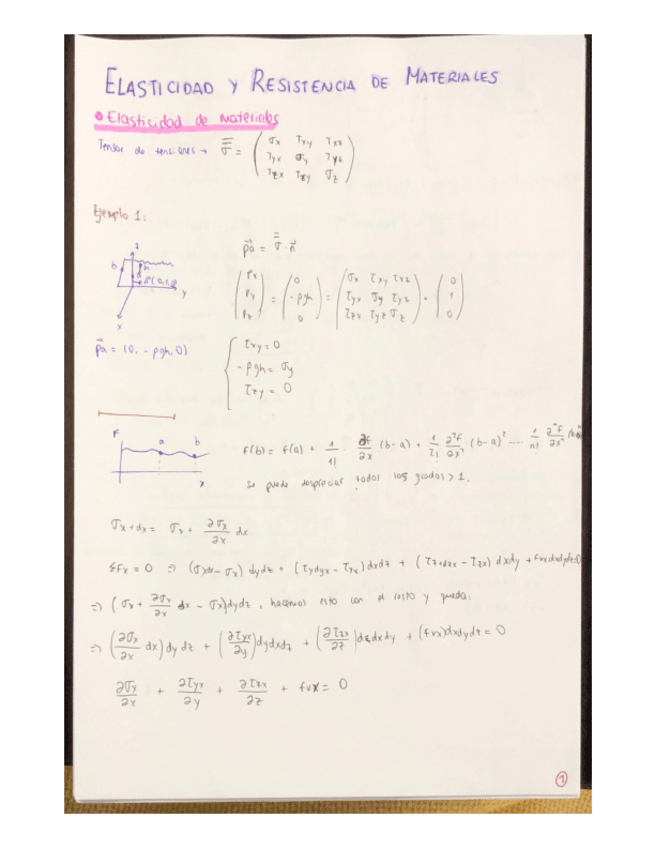 ELASTICIDAD Y RESISTENCIA DE MATERIALES
Elasticidad de materiales
Tensor de tensiones → σ̿ = ( σx τxy τxz
τyx σy τyz
τzx τzy σz )
Ejemplo 1:
p⃗a = σ̿ · n⃗
z
b
h
y
x
( Px Py Pz ) = ( 0 -ρgh 0 ) = ( σx τxy τxz
τyx σy τyz
τzx τyz σz ) · ( 0 1 0 )
p⃗a = (0, -ρgh, 0)
τxy = 0
-ρgh = σy
τzy = 0
F
a
b
x
F(b) = F(a) + 1/1! · ∂f/∂x (b-a) + 1/2! ∂²f/∂x² (b-a)² .... 1/n!
Se puede despreciar todos los grados > 1.
σx+dx = σx + ∂σx/∂x dx
ΣFx = 0 ⇒ - σx) dydz + - τyx) dxdz + - τzx) dxdy + fvxdxdydz=0
⇒ (σx + ∂σx/∂x dx - σx)dydz, hacemos esto con el resto y queda:
⇒ (∂σx/∂x dx) dy dz + (∂τyx/∂y)dydxdz + (∂τzx/∂z)dzdxdy + (fvx)dxdydz = 0
∂σy/∂x + ∂τyx/∂y + ∂τzx/∂z + fvx = 0
1